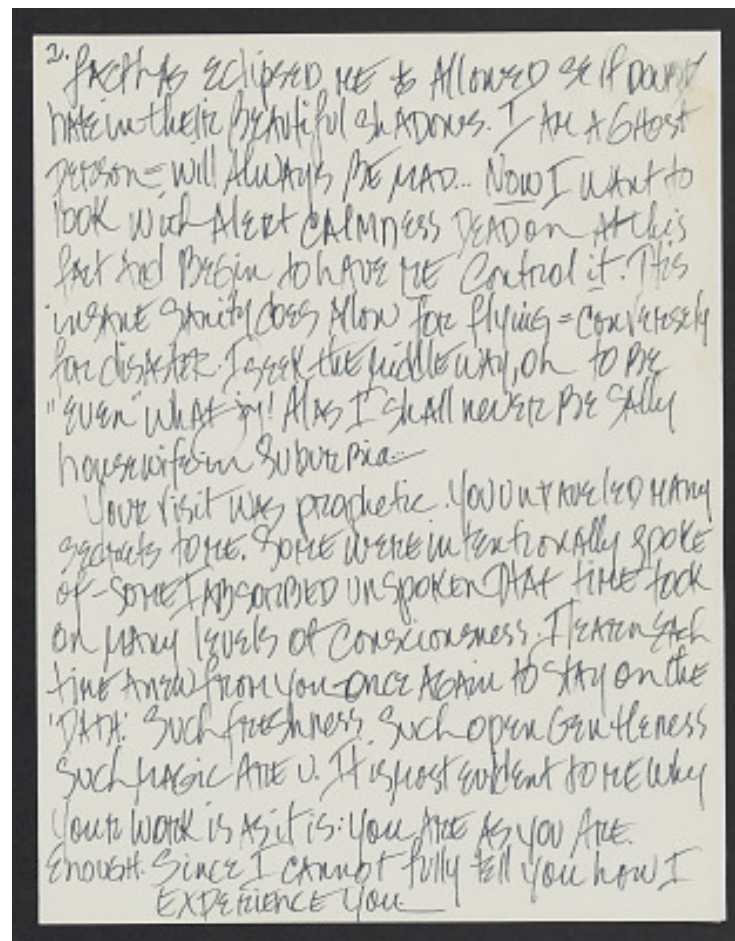 2.
fact has eclipsed me & Allowed self doubt
hate in their Beautiful shadows. I Am A Ghost
person = will Always Be MAD... Now I want to
look with Alert CALMNESS DEAD on At this
fact And Begin to have ME Control it. This
insane sanity does Allow for flying = conversely
for disaster. I seek the middle way, oh to be
"even" what joy! Alas I shall never Be Sally
housewife in Suburbia—
Your visit was prophetic. You unraveled many
secrets to me. Some were intentionally spoke
of - some I Absorbed unspoken THAT time took
on many levels of consciousness. I learn each
time Anew from you once Again to stay on the
'DATA'. Such freshness. Such open Gentleness
Such magic Are U. It is most evident to me why
your work is As it is: you Are As you Are.
Enough. Since I cannot fully tell you how I
EXPERIENCE you—